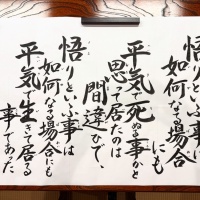 悟りといふ事は
如何なる場合
にも
平気で死ぬる事かと
思って居たのは
間違ひで、
悟りといふ事は
如何なる場合にも
平気で生きて居る
事であった